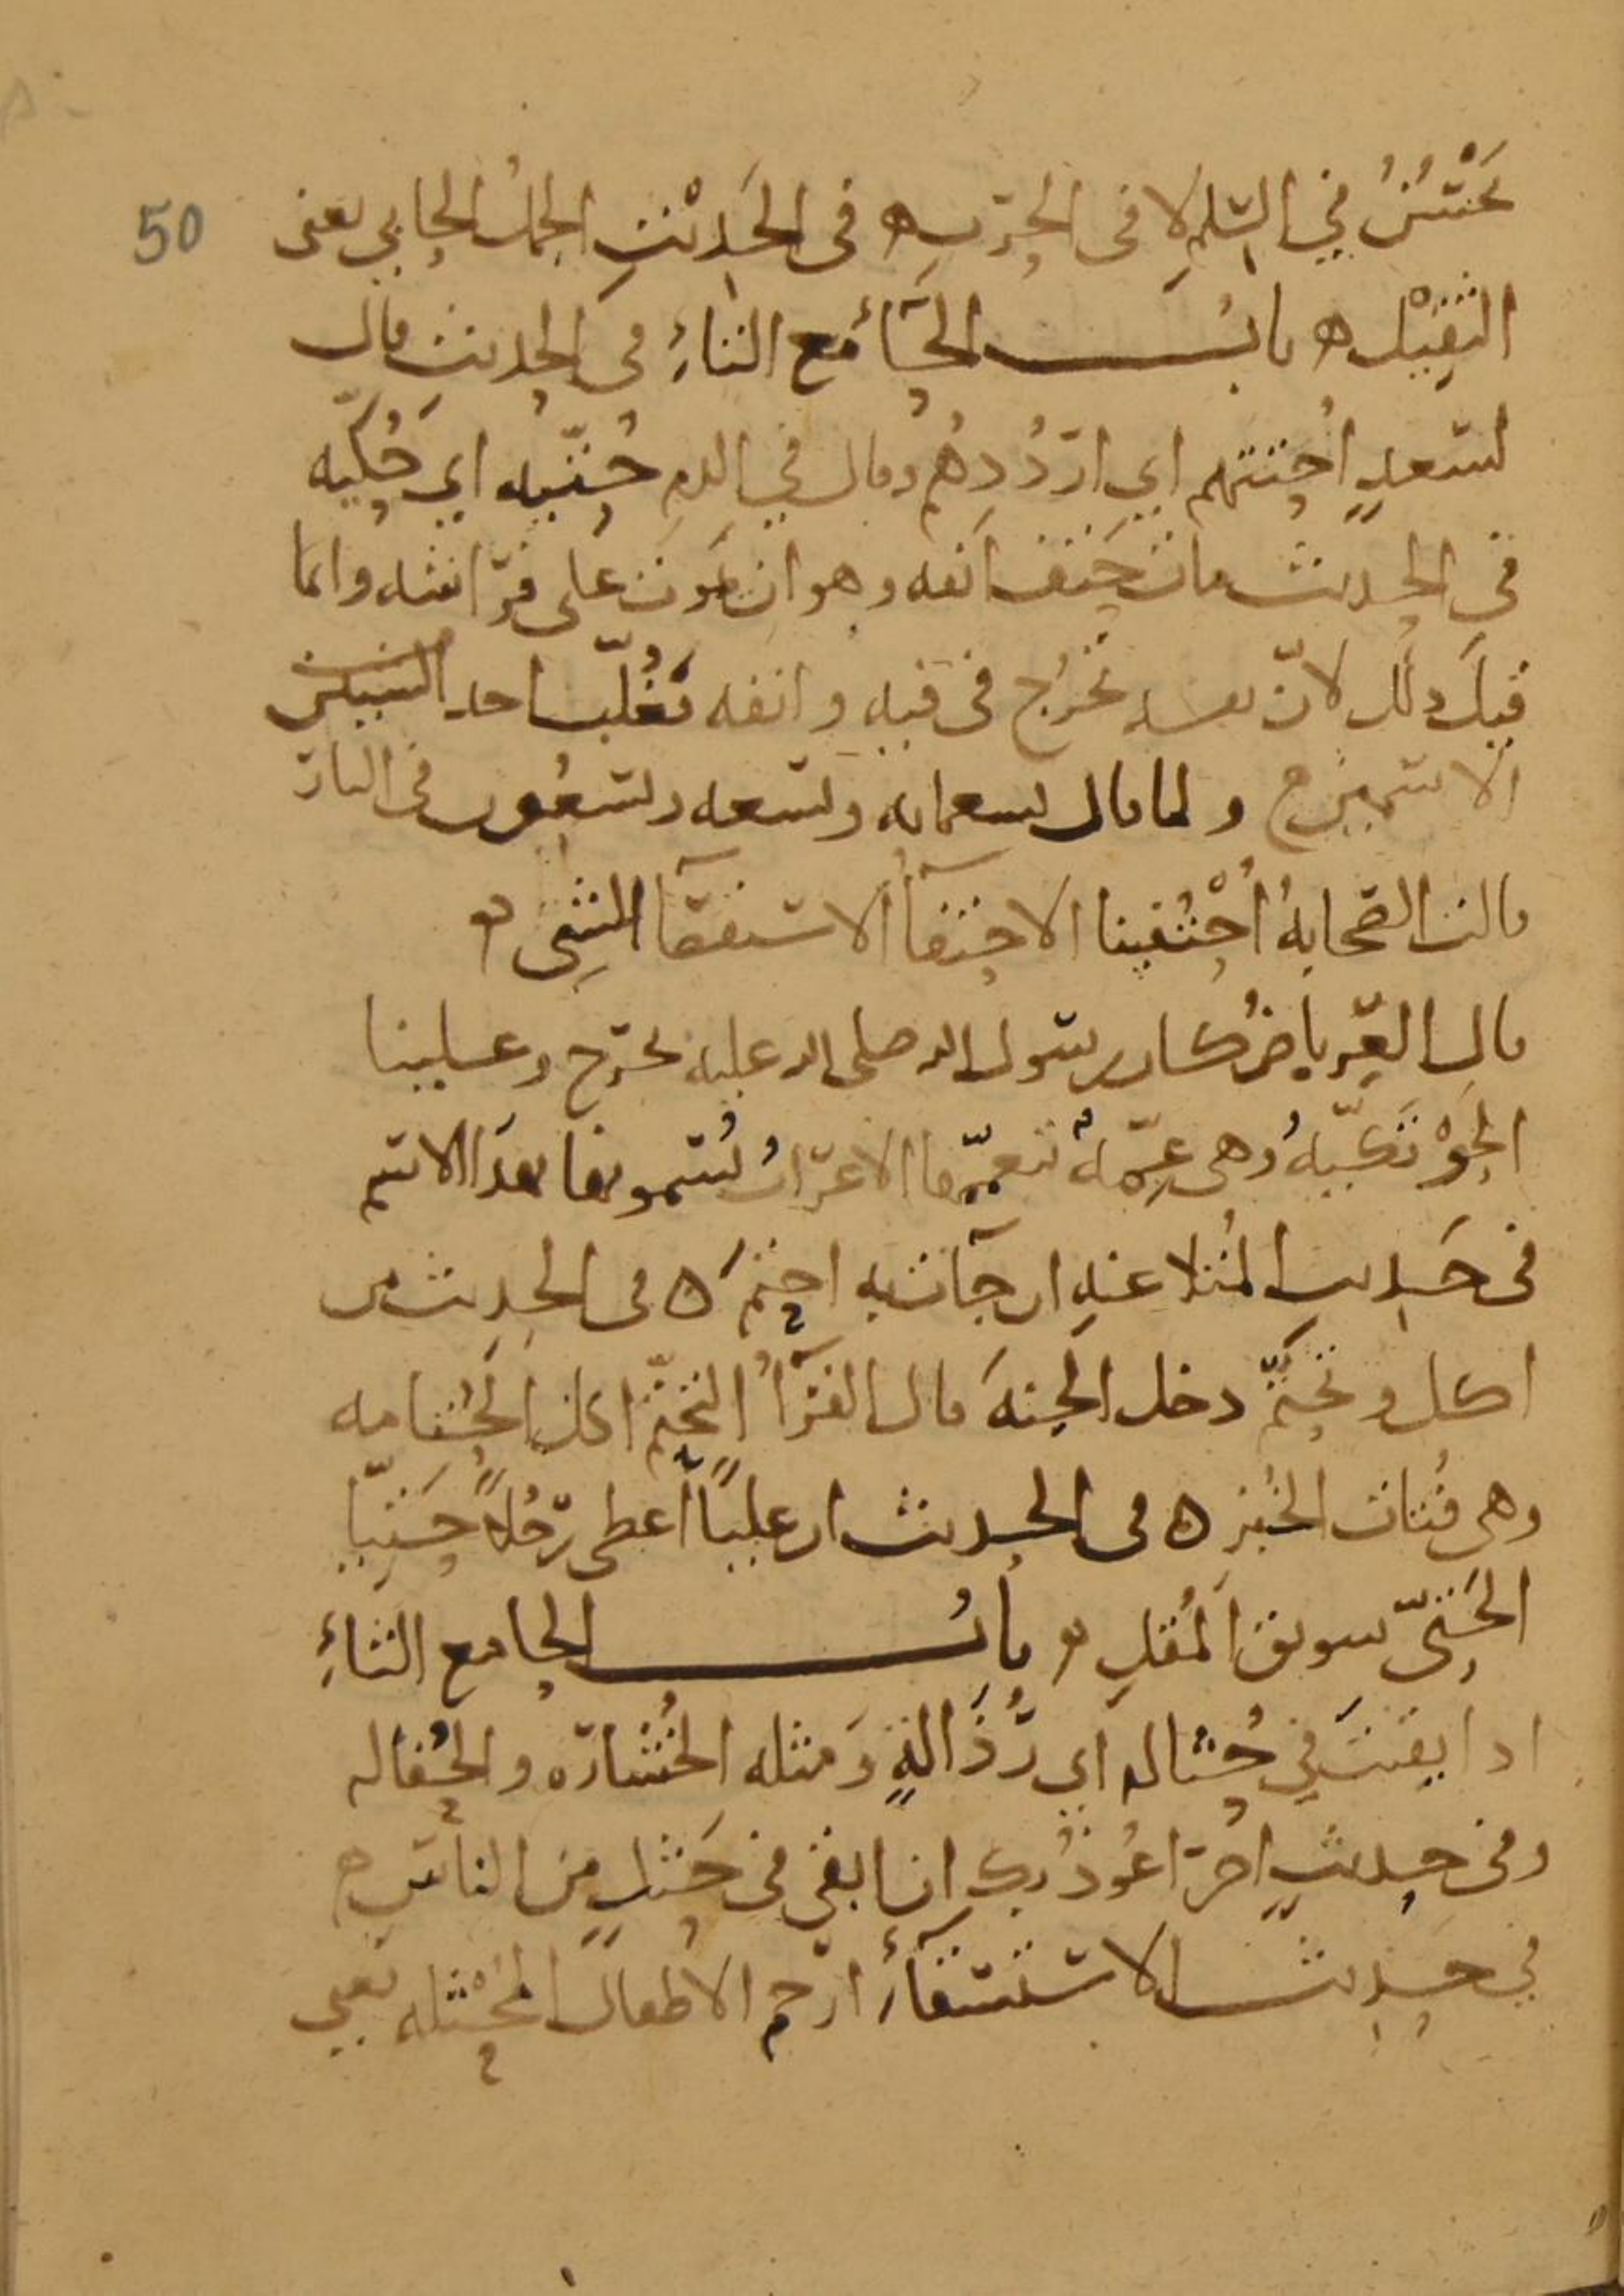 يَحْتَسُنُ في السّلمِ لا في الحَرْبِ ه في الحَدِيْثِ الجمل الحابي يعني
50
الثقِيْل ه بابُ الحَاء مَع التاءِ في الحديث قال
لسَعدٍ احُتتهم اي ارْدُدهُم وقال في الدم حُتّيه اي حُكّيه
في الحديث مات حَتف انفه وهو ان يَموت على فرَاشه وانما
قيلَ ذلك لانّ نفسه تخرُج في فيه وانفه فغُلّب احد السببين
الاسمين ه ولما قال تسعمايه وتسعه وتسعون في النار
قالت الصّحابةُ أُحْتُفينا الاحتفآ الاستقصآ للشي ه
قال العِرباضُ كان رسول الله صلى الله عليه يخرج وعلينا
الحَوْتكيّهُ وهي عِمّهٌ تتعمّمها الاعرَابُ يُسمونها بهذا الاسم
في حَديث المُلاعنهِ ان جآت به احتم ه في الحديث من
اكل وتحتّمَ دخل الجنهَ قال الفرّآءُ التحتّم اكل الحُتامه
وهي فُتات الخُبز ه في الحديث ان عليًا اعطى رجُلًا حَتيّا
الحَتيّ سويق المُقلِ ه بابُ الحا مع الثاءِ
اذا بقيتَ في حُثاله اي رُذَالةٍ ومثله الخُشاره والحُفاله
وفي حديثٍ اخر اعُوذُ بك ان ابقى في حَثلٍ من الناس ه
في حديث الاستسقاءِ ارحم الاطفالَ المُحْثله يعني